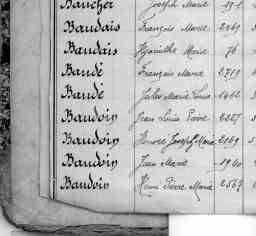 Baucher Joseph Marie
Baudais François Marie 2469
Baudais Hyacinthe Marie 76
Baudé François Marie 2719
Baudé Jules Marie Louis 1462
Baudoin Jean Louis Pierre 2227
Baudoin Honoré Joseph Marie 2169
Baudoin Jean Marie 1940
Baudoin Henri Pierre Marie 2567